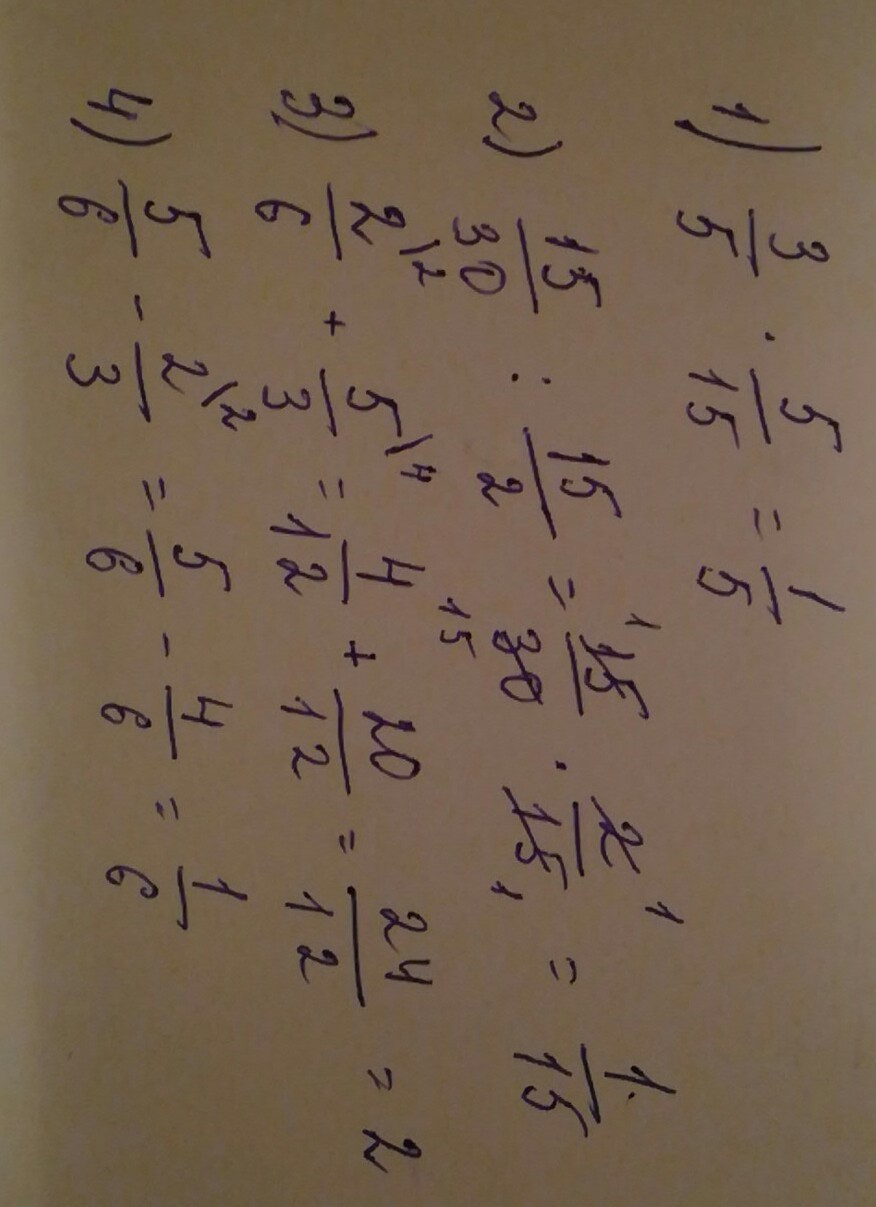 1) 3/5 · 5/15 = 1/5
2) 15/30 : 15/2 = ¹15/30₁₅ · 2¹/15₁ = 1/15
3) 2\2/6 + 5\4/3 = 4/12 + 20/12 = 24/12 = 2
4) 5/6 - 2\2/3 = 5/6 - 4/6 = 1/6